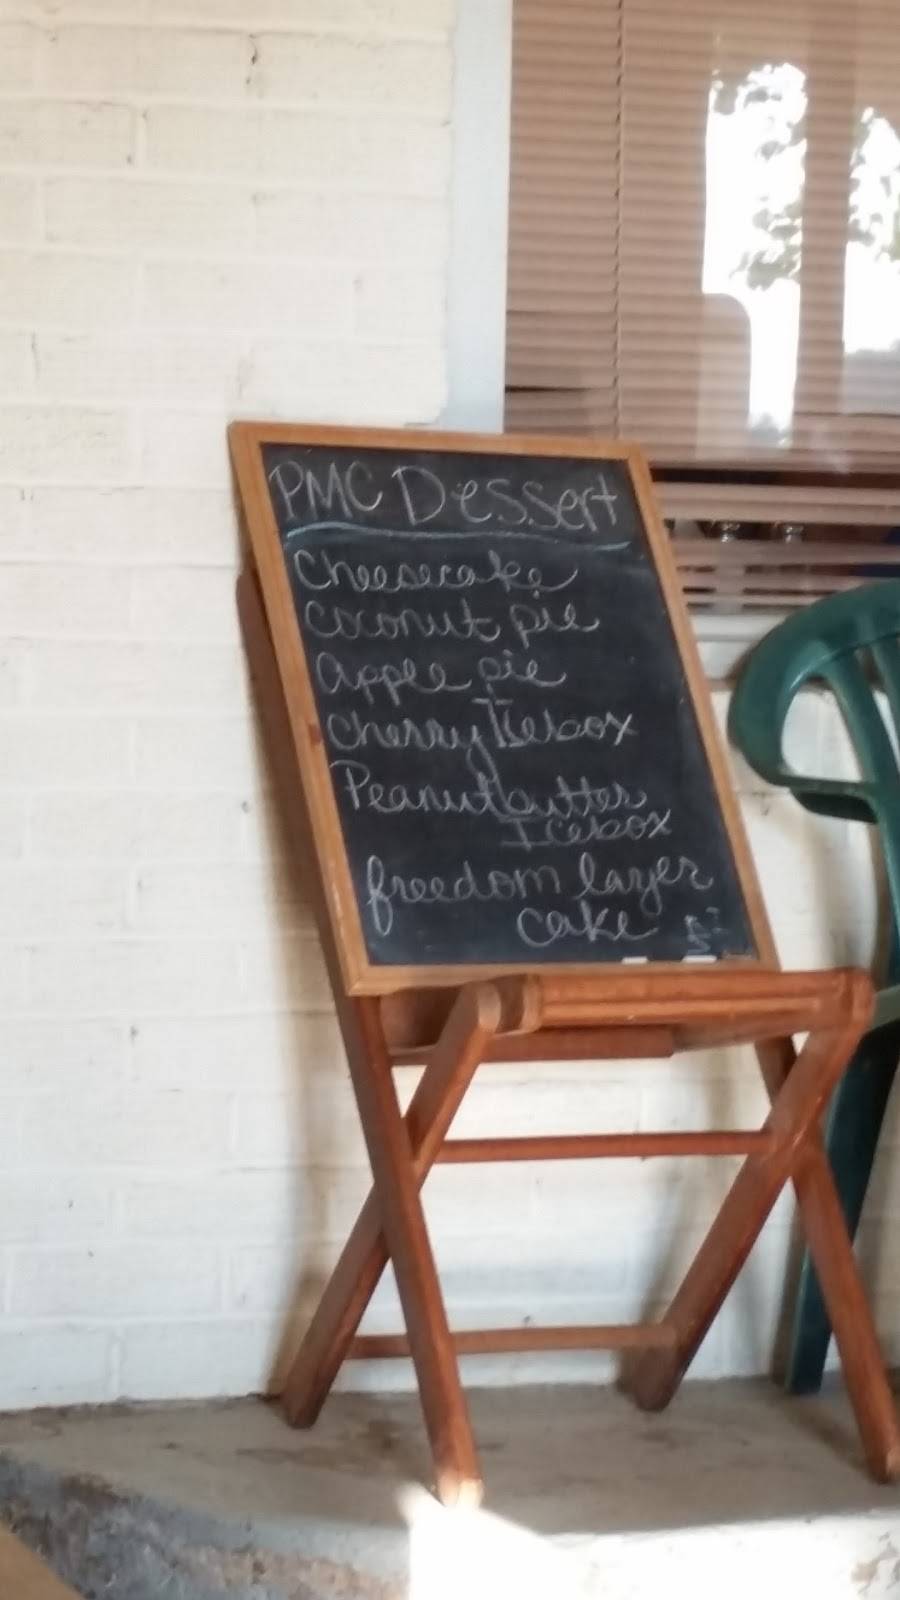 PMC Dessert
Cheesecake
Coconut pie
Apple pie
Cherry Icebox
Peanutbutter
Icebox
freedom layer
cake